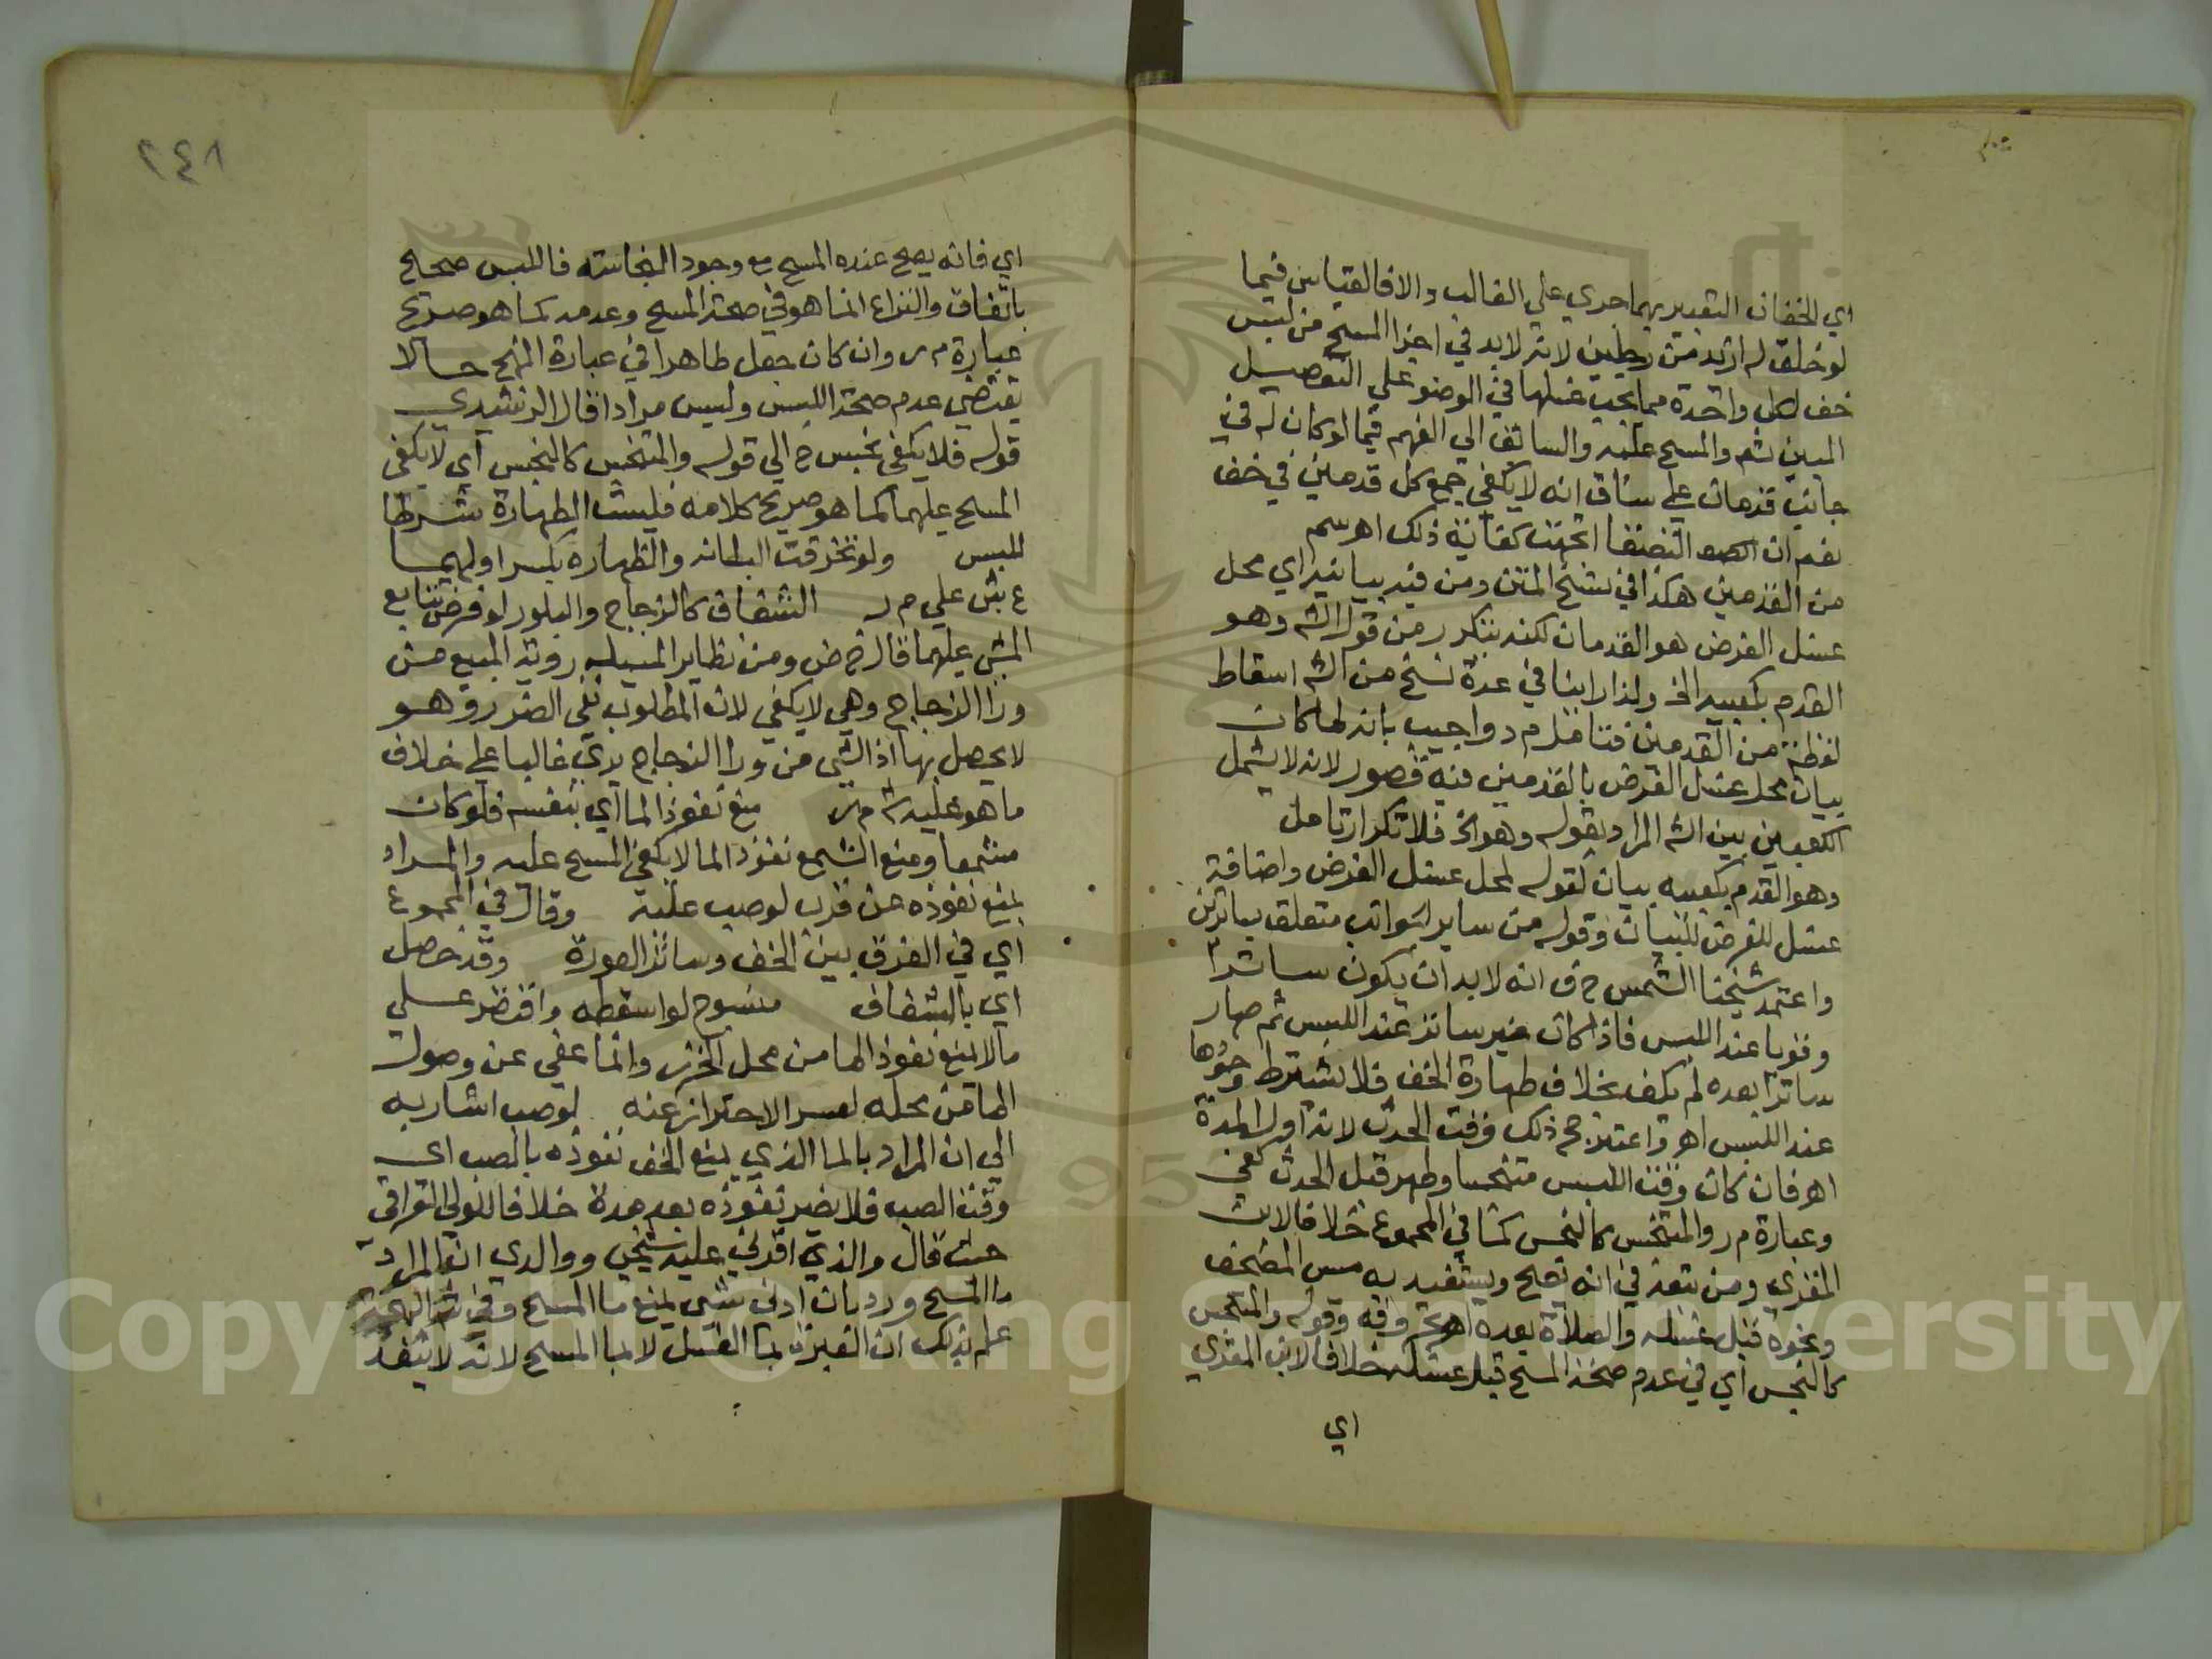 اي الخفان التعبير بهما جري علي الغالب والا فالقياس فيما
لو خلق له ازيد من رجلين لانه لابد في اجزا المسح من لبس
خف لكل واحدة مما يجب غسلها في الوضو علي التفصيل
المبين ثم والمسح عليه والسابق الي الفهم فيما لو كان له في
جانب قدمان علي ساق انه لا يكفي جمع كل قدمين في خف
نعم ان التصقا اتجهت كفاية ذلك اهر سم
من القدمين هكذا في نسخ المتن ومن فيه بيانية اي محل
غسل الفرض هو القدمان لكنه يتكرر من قول الش وهو
القدم بكعبيه الخ ولذا راينا في عدة نسخ من الش اسقاط
لفظة من القدمين فتامل م د واجيب بانه لما كان
بيان محل غسل الفرض بالقدمين فيه قصور لانه لا يشمل
الكعبين بين الش المراد بقوله وهو الخ فلا تكرار تامل
وهو القدم بكعبيه بيان لقوله لمحل غسل الفرض واضافة
غسل للفرض للبيان وقوله من ساير الجوانب متعلق بساترين
واعتمد شيخنا الشمس ح ف انه لابد ان يكون ساترا
وقويا عند اللبس فاذا كان غير ساتر عند اللبس ثم صار
ساترا بعده لم يكف بخلاف طهارة الخف فلا يشترط وجودها
عند اللبس اهر واعتبر حج ذلك وقت الحدث لانه اول المدة
اهر فان كان وقت اللبس متنجسا وطهر قبل الحدث كفي
وعبارة م ر والمتنجس كالنجس كما في المجموع خلافا لابن
المقري ومن تبعه في انه يصح ويستفيد به مس المصحف
ونحوه قبل غسله والصلاة بعده اهر بحروفه وقوله والمتنجس
كالنجس اي في عدم صحة المسح قبل غسله خلافا لابن المقري
اي
٢٤٨
اي فانه يصح عنده المسح مع وجود النجاسة فاللبس صحيح
باتفاق والنزاع انما هو في صحة المسح وعدمه كما هو صريح
عبارة م ر وان كان جعل طاهرا في عبارة المنهج حالا
يقتضي عدم صحة اللبس وليس مرادا قال الرشيدي
قوله فلا يكفي نجس ح الي قوله والمتنجس كالنجس اي لا يكفي
المسح عليهما كما هو صريح كلامه فليست الطهارة شرطا
للبس ولو تخرقت البطانه والظهاره بكسر اولهما
ع ش علي م ر الشفاف كالزجاج والبلور لو فرض تتابع
المشي عليهما قال ح ض ومن نظاير المسيله روية المبيع من
ورا الزجاج وهي لا يكفي لان المطلوب نفي الضرر وهو
لا يحصل بها اذ الشي من ورا الزجاج يري غالبا علي خلاف
ما هو عليه ش م ر منع نفوذ الما اي بنفسه فلو كان
مشمعا ومنع الشمع نفوذ الما لا يكفي المسح عليه والمراد
بمنع نفوذه عن قرب لو صب عليه وقال في المجموع
اي في الفرق بين الخف وساتر العورة وقد حصل
اي بالشفاف منسوج لو اسقطه واقتصر علي
مالا يمنع نفوذ الما من محل الخرز وانما عفي عن وصول
الما من محله لعسر الاحتراز عنه لو صب اشار به
الي ان المراد بالما الذي يمنع الخف نفوذه بالصب اي
وقت الصب فلا يضر نفوذه بعد مدة خلافا للولي العراقي
حيث قال والذي اقرني عليه شيخي ووالدي ان المراد
ما المسح ورد بان ادني شي يمنع ما المسح وفي شرح البهجة
علم بذلك ان العبرة بما الغسل لا بما المسح لانه لا ينفذ